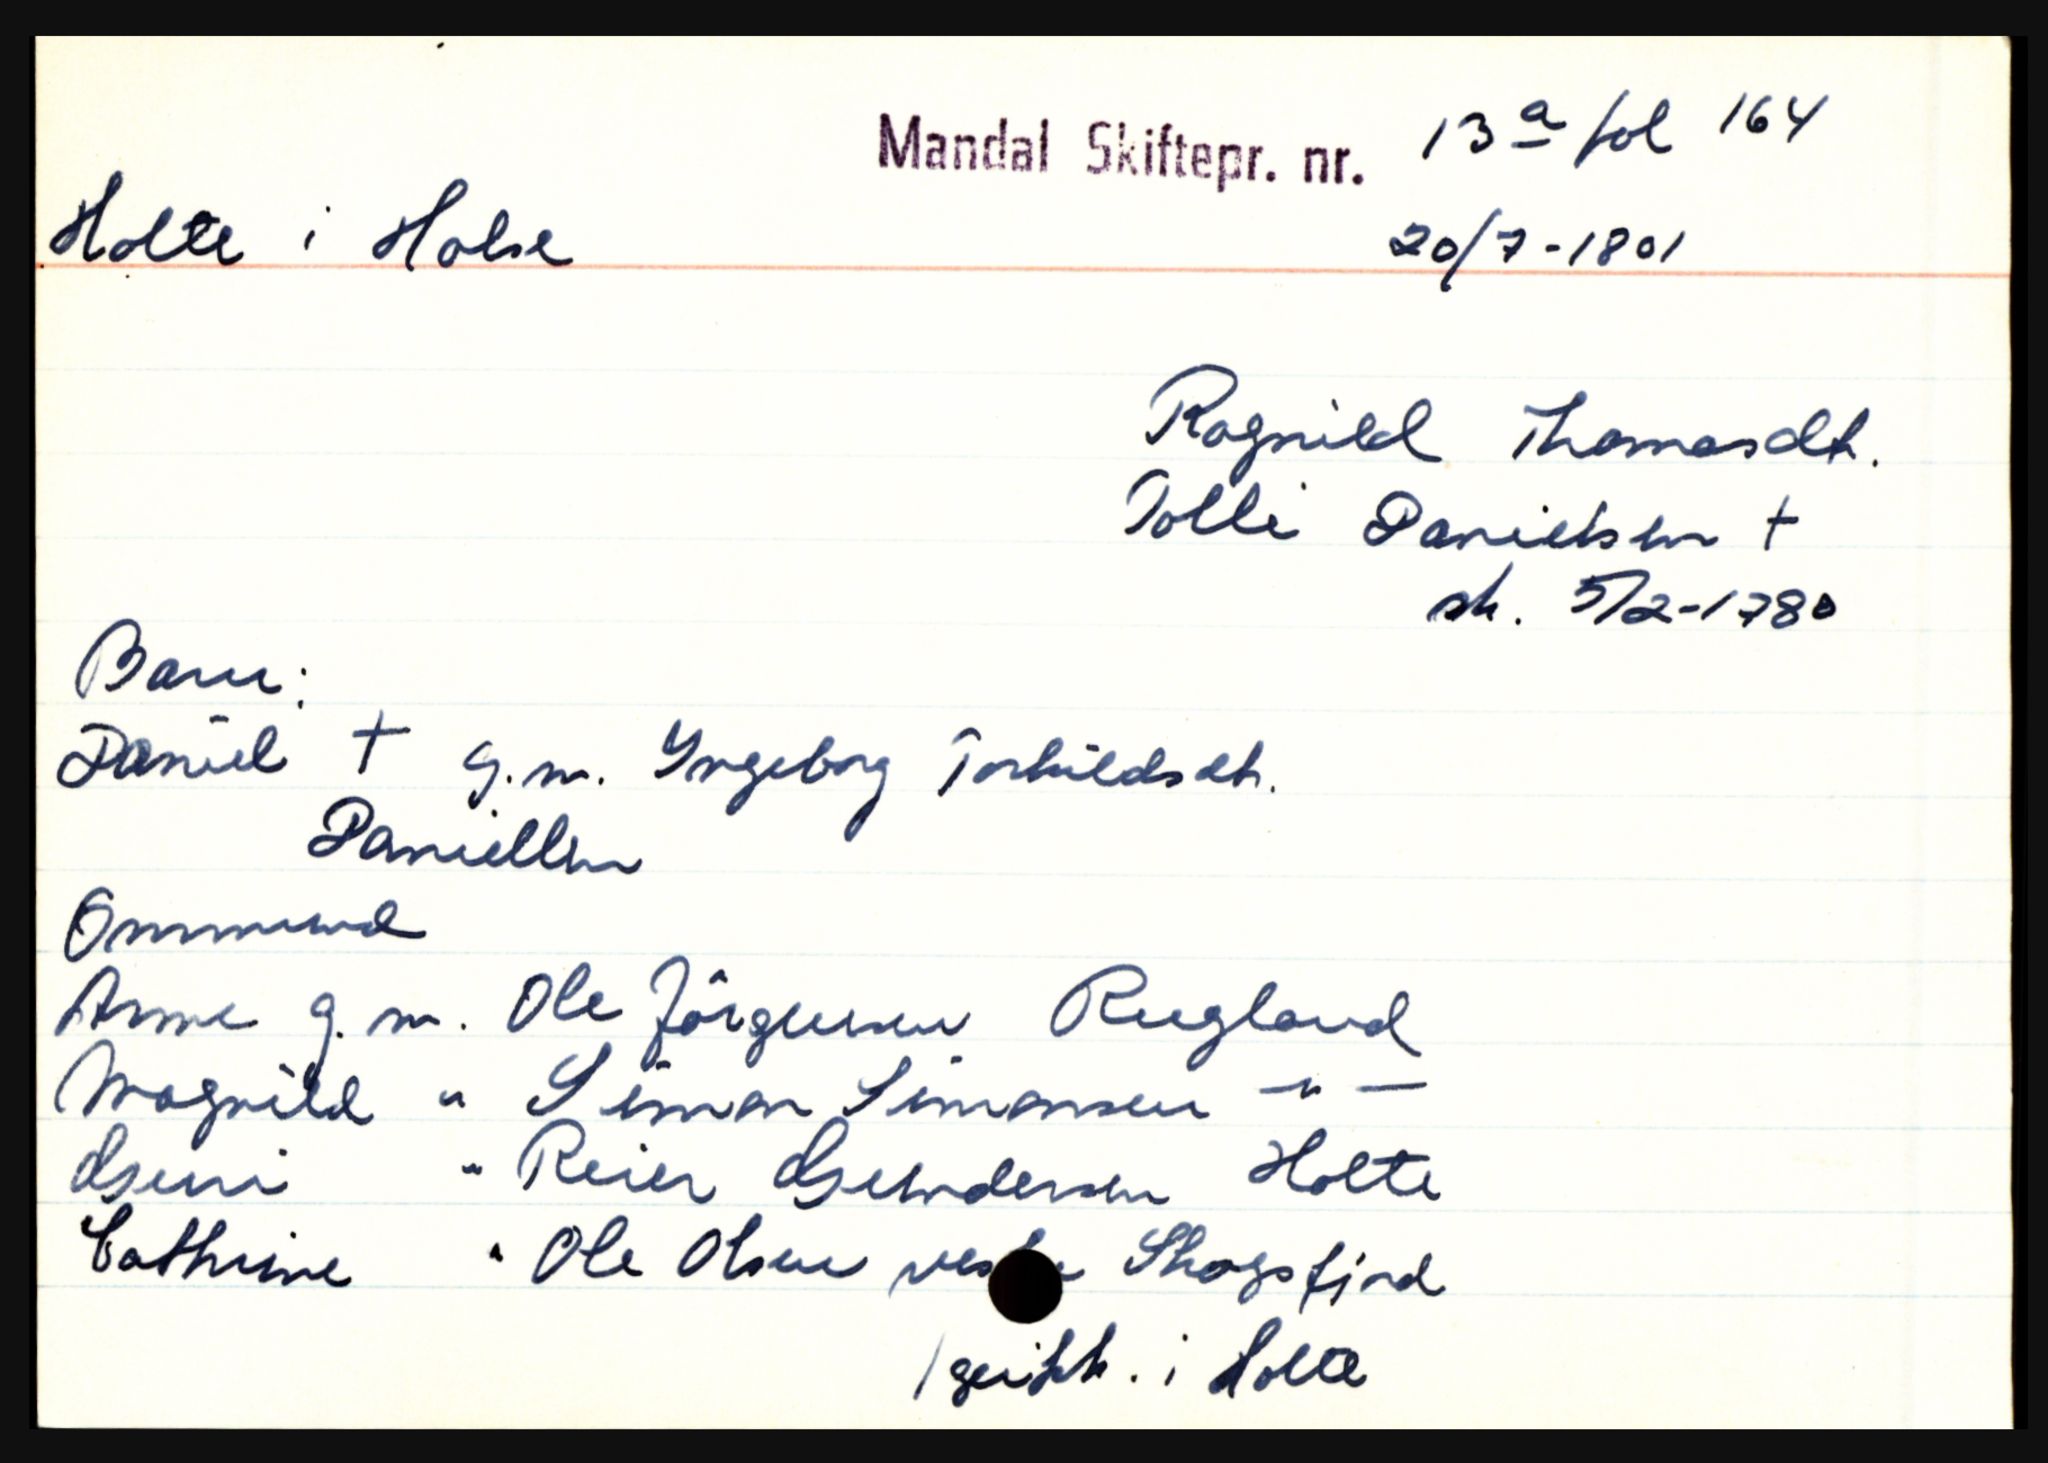 Mandal Skiftepr. nr. 13a fol 164
Holte i Halse 20/7-1801
Ragnild Thomasdt.
Tolli Danielsen +
sk. 5/2-1780
Barn:
Daniel + g.m. Yngeborg Torkildsdt.
Daniellsen
Ommund
Anne g.m. Ole Jörgensen Rugland
Magnild " Siman Simonsen — " —
Guni " Reier Gundersen Holte
Cathrine " Ole Olsen Skogsfjord
i Holte